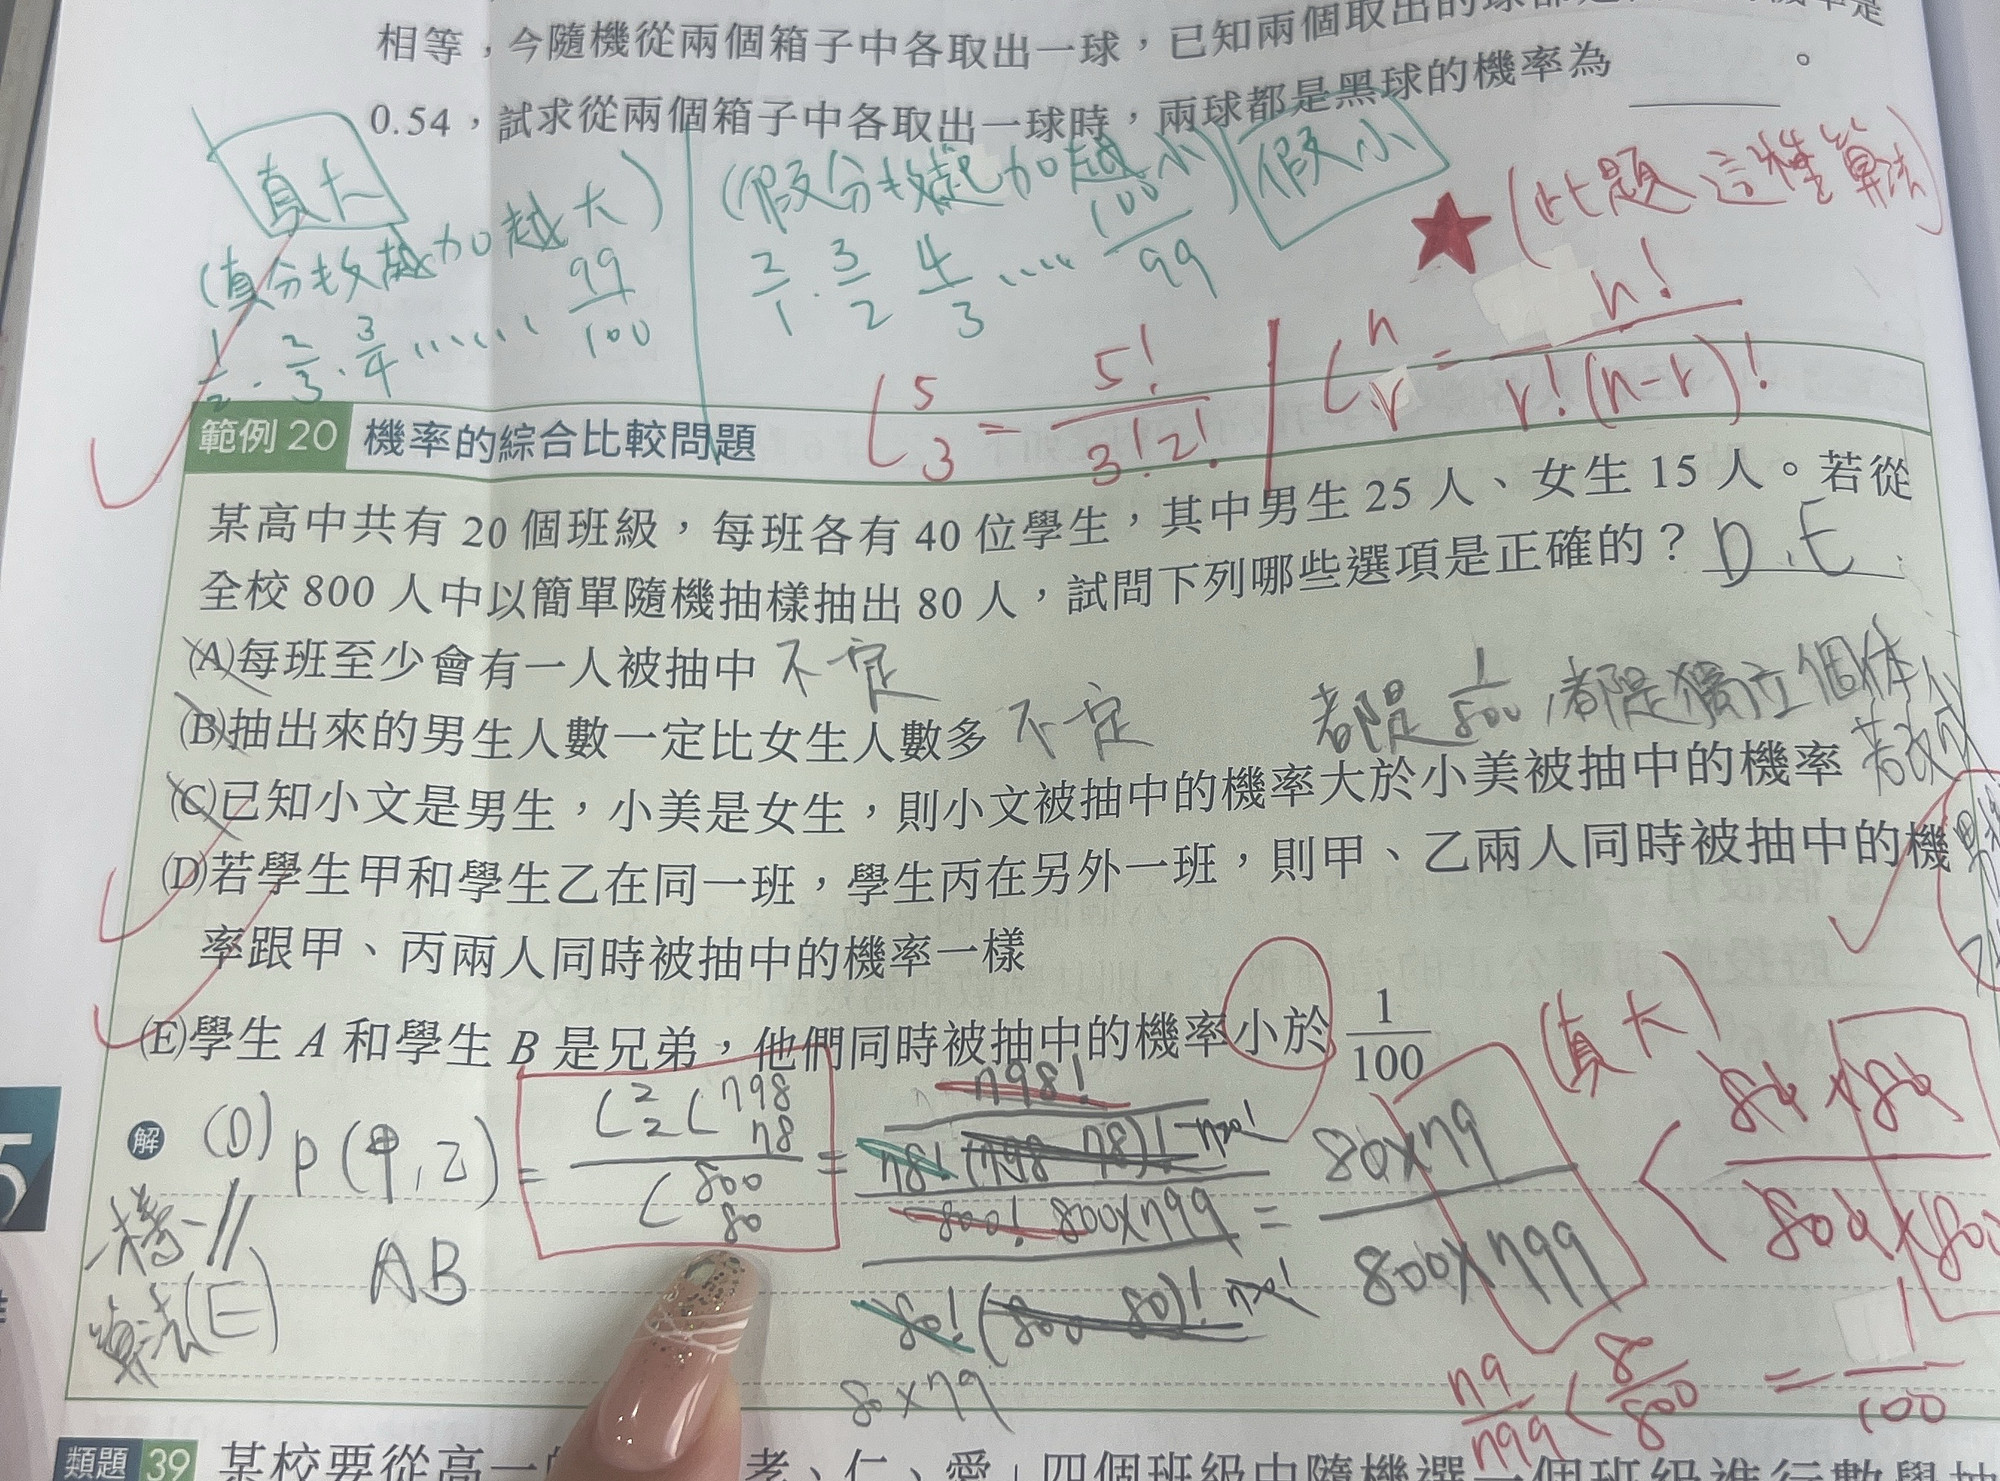 相等，今隨機從兩個箱子中各取出一球，已知兩個取出的球都是
0.54，試求從兩個箱子中各取出一球時，兩球都是黑球的機率為＿＿＿。
真大
(真分數越加越大)
1/2 . 2/3 . 3/4 ...... 99/100
(假分數越加越小)
假小
2/1 . 3/2 4/3 ..... 100/99
★(此題這種算法)
C⁵₃ = 5!/3!2!
Cⁿᵣ = n!/r!(n-r)!
範例 20 機率的綜合比較問題
某高中共有 20 個班級，每班各有 40 位學生，其中男生 25 人、女生 15 人。若從
全校 800 人中以簡單隨機抽樣抽出 80 人，試問下列哪些選項是正確的？ D、E
(A)每班至少會有一人被抽中 不一定
(B)抽出來的男生人數一定比女生人數多 不一定
都是 1/800，都是獨立個體
若改成
(C)已知小文是男生，小美是女生，則小文被抽中的機率大於小美被抽中的機率
(D)若學生甲和學生乙在同一班，學生丙在另外一班，則甲、乙兩人同時被抽中的機
率跟甲、丙兩人同時被抽中的機率一樣
(E)學生 A 和學生 B 是兄弟，他們同時被抽中的機率小於 1/100
(真大)
解 (D) P(甲,乙) = C²₂C⁷⁹⁸₇₈/C⁸⁰⁰₈₀ = 798!/78!(798-78)! 720! / 800! 800×799/80!(800-80)! 720! = 80×79/800×799 < 80×80/800×800
80×79
一樣
AB
算法(E)
79/799 < 8/800 = 1/100
類題 39 某校要從高一 老、仁、愛」四個班級中隨機選一個班級進行數學抽